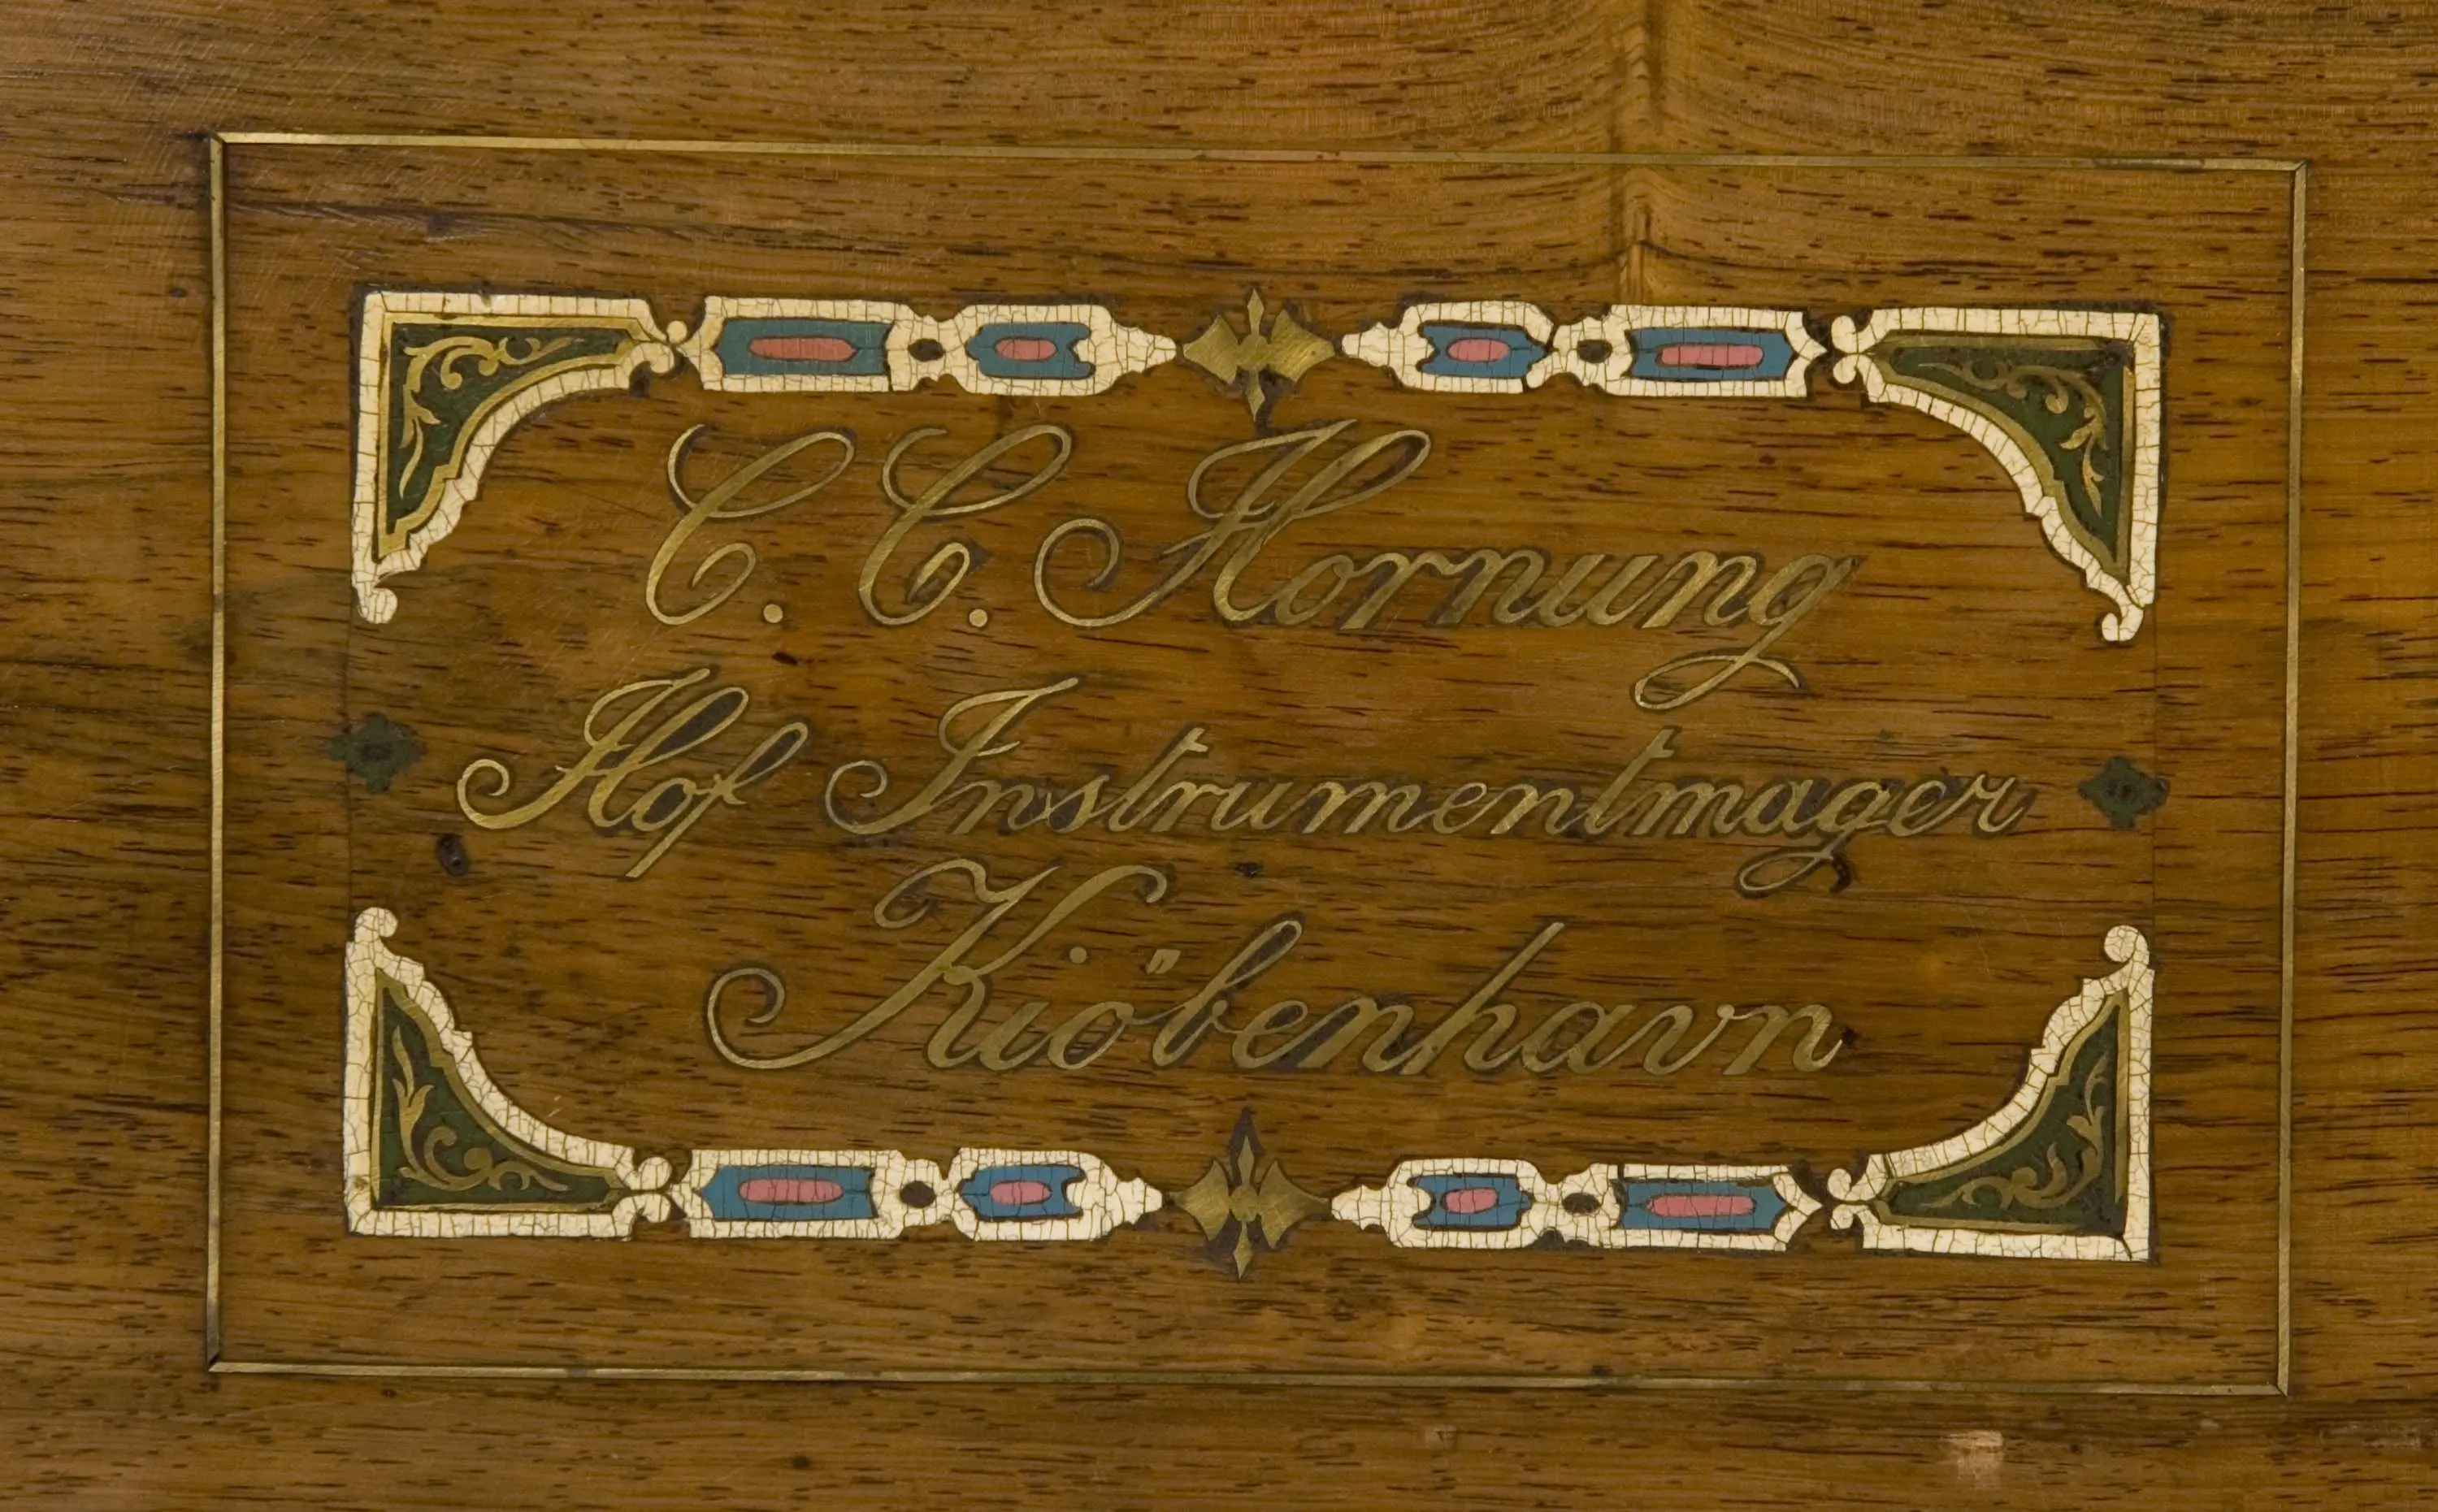 C. C. Hornung
Hof Instrumentmager
Kiöbenhavn